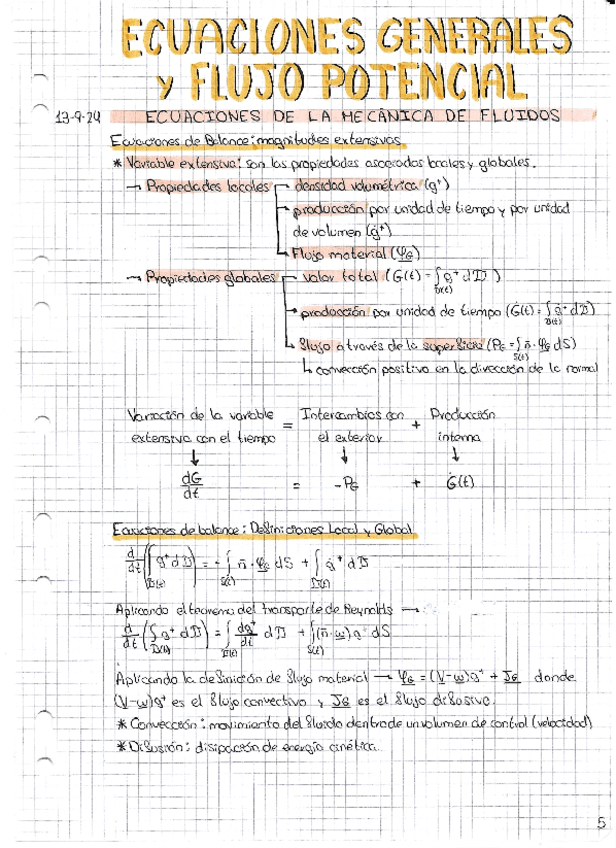 ECUACIONES GENERALES
y FLUJO POTENCIAL
13-9-24 ECUACIONES DE LA MECÁNICA DE FLUIDOS
Ecuaciones de Balance: magnitudes extensivas
* Variable extensiva: son las propiedades asociadas locales y globales.
→ Propiedades locales → densidad volumétrica (g⁺)
→ producción por unidad de tiempo y por unidad
de volumen (ġ⁺)
→ Flujo material (φ_G)
→ Propiedades globales → valor total (G(t) = ∫_{D(t)} g⁺ dD)
→ producción por unidad de tiempo (Ġ(t) = ∫_{D(t)} ġ⁺ dD)
→ flujo a través de la superficie (P_G = ∫_{S(t)} n̄ · φ_G dS)
↳ convección positiva en la dirección de la normal
Variación de la variable = Intercambios con + Producción
extensiva con el tiempo el exterior interna
↓ ↓ ↓
dG/dt = -P_G + Ġ(t)
Ecuaciones de balance: Definiciones Local y Global
d/dt (∫_{D(t)} g⁺ dD) = - ∫_{S(t)} n̄ · φ_G dS + ∫_{D(t)} ġ⁺ dD
Aplicando el teorema del transporte de Reynolds →
d/dt (∫_{D(t)} g⁺ dD) = ∫_{D(t)} dg⁺/dt dD + ∫_{S(t)} (n̄ · w) g⁺ dS
Aplicando la definición de flujo material → φ_G = (V-w)g⁺ + J_G donde
(V-w)g⁺ es el flujo convectivo y J_G es el flujo difusivo.
* Convección: movimiento del fluido dentro de un volumen de control (velocidad)
* Difusión: disipación de energía cinética.
5